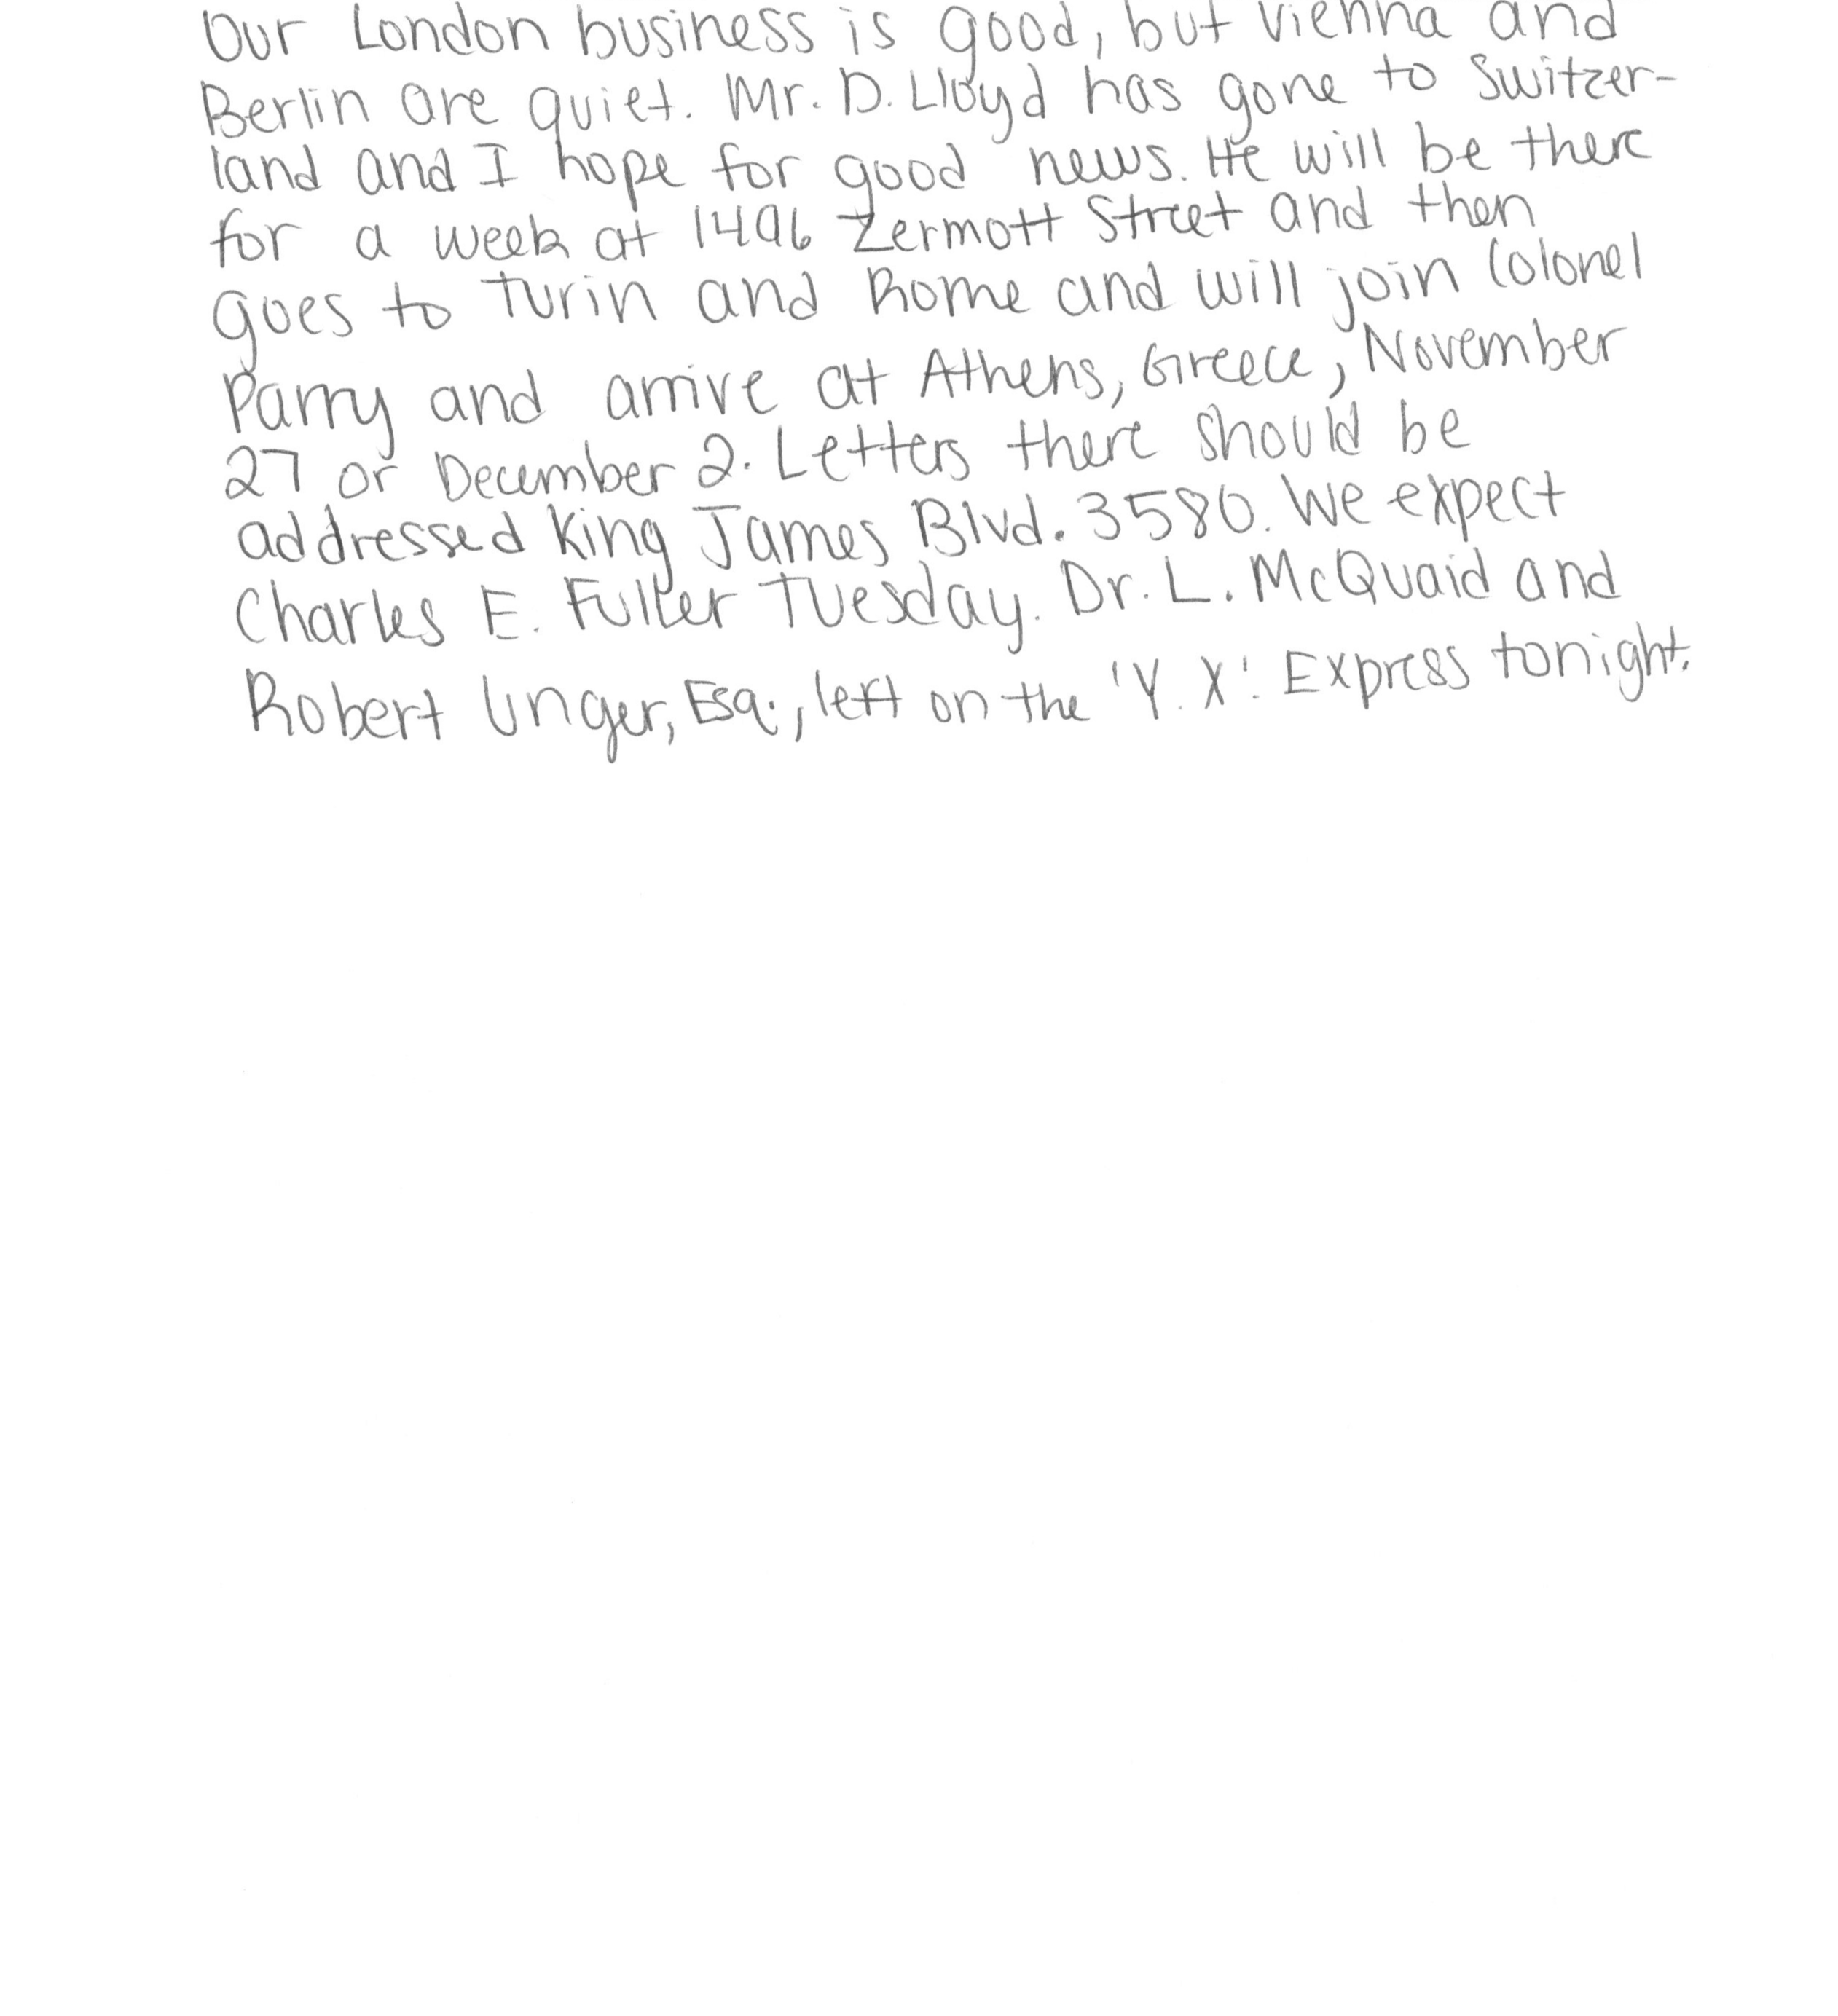 Our London business is good, but Vienna and
Berlin are quiet. Mr. D. Lloyd has gone to Switzer-
land and I hope for good news. He will be there
for a week at 1496 Zermott Street and then
goes to Turin and Rome and will join Colonel
Parry and arrive at Athens, Greece, November
27 or December 2. Letters there should be
addressed King James Blvd. 3580. We expect
Charles E. Fuller Tuesday. Dr. L. McQuaid and
Robert Unger, Esq., left on the 'Y. X'. Express tonight.